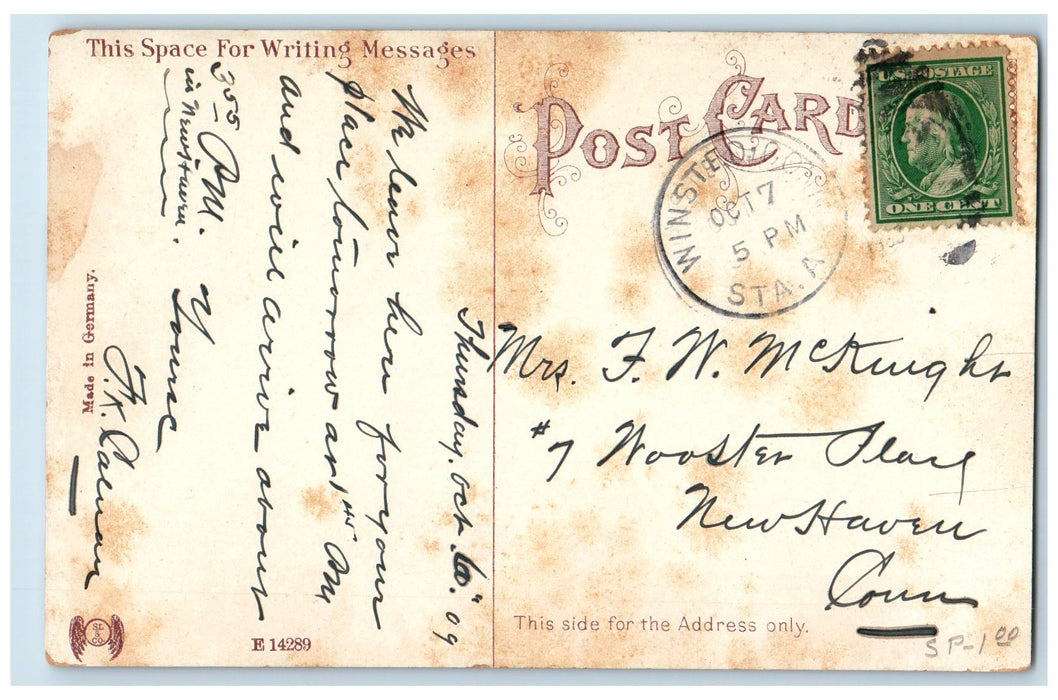 This Space For Writing Messages
Thursday. Oct. 09
We leave here for your
place tomorrow at 1 PM
and will arive about
3 55 P.M.
in New Haven.
Yours
F.K.
Made in Germany.
SL & CO
E 14289
POST CARD
U.S. POSTAGE
ONE CENT
WINSTED, CONN
OCT 7
5 PM
STA. A
Mrs. F. W. McKnight
#7 Wooster Place
New Haven
Conn
This side for the Address only.
SP-1 00